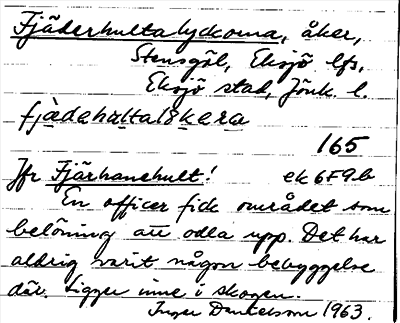 Fjäderhultalyckorna, åker,
Stensgöl, Eksjö lfs,
Eksjö stad, Jönk. l.
fjàdahultal
165
Jfr Fjärhanehult! ek 6F9b
En officer fick området som
belöning att odla upp. Det har
aldrig varit någon bebyggelse
där. Ligger inne i skogen.
Inger Danielsson 1963.